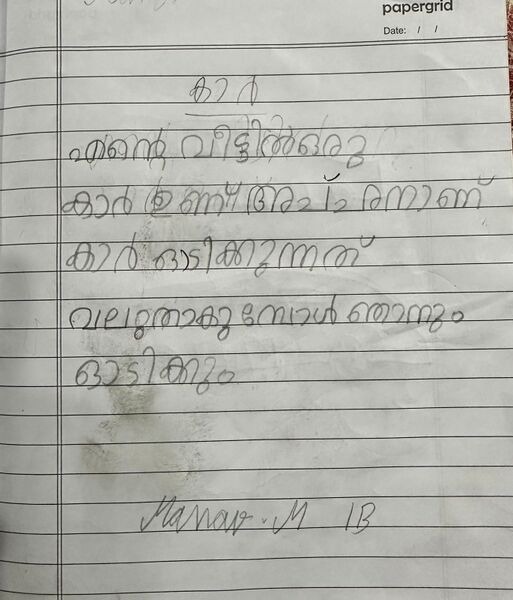 papergrid
Date: / /
കാർ
എന്റെ വീട്ടിൽ ഒരു
കാർ ഉണ്ട് അച്ചനാണ്
കാർ ഓടിക്കുന്നത്
വലുതാകുമ്പോൾ ഞാനും
ഓടിക്കും
Manav. M 1B